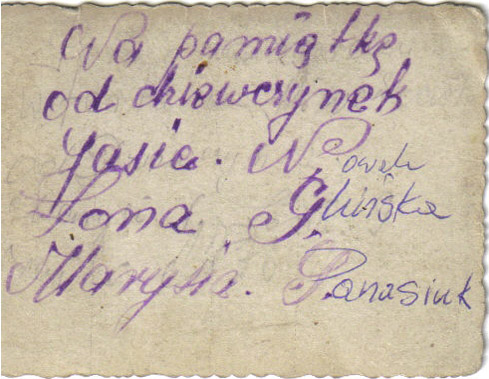 Na pamiątkę
od dziewczynek
Jasia. Nowak
Iona Glińska
Marysia. Panasiuk